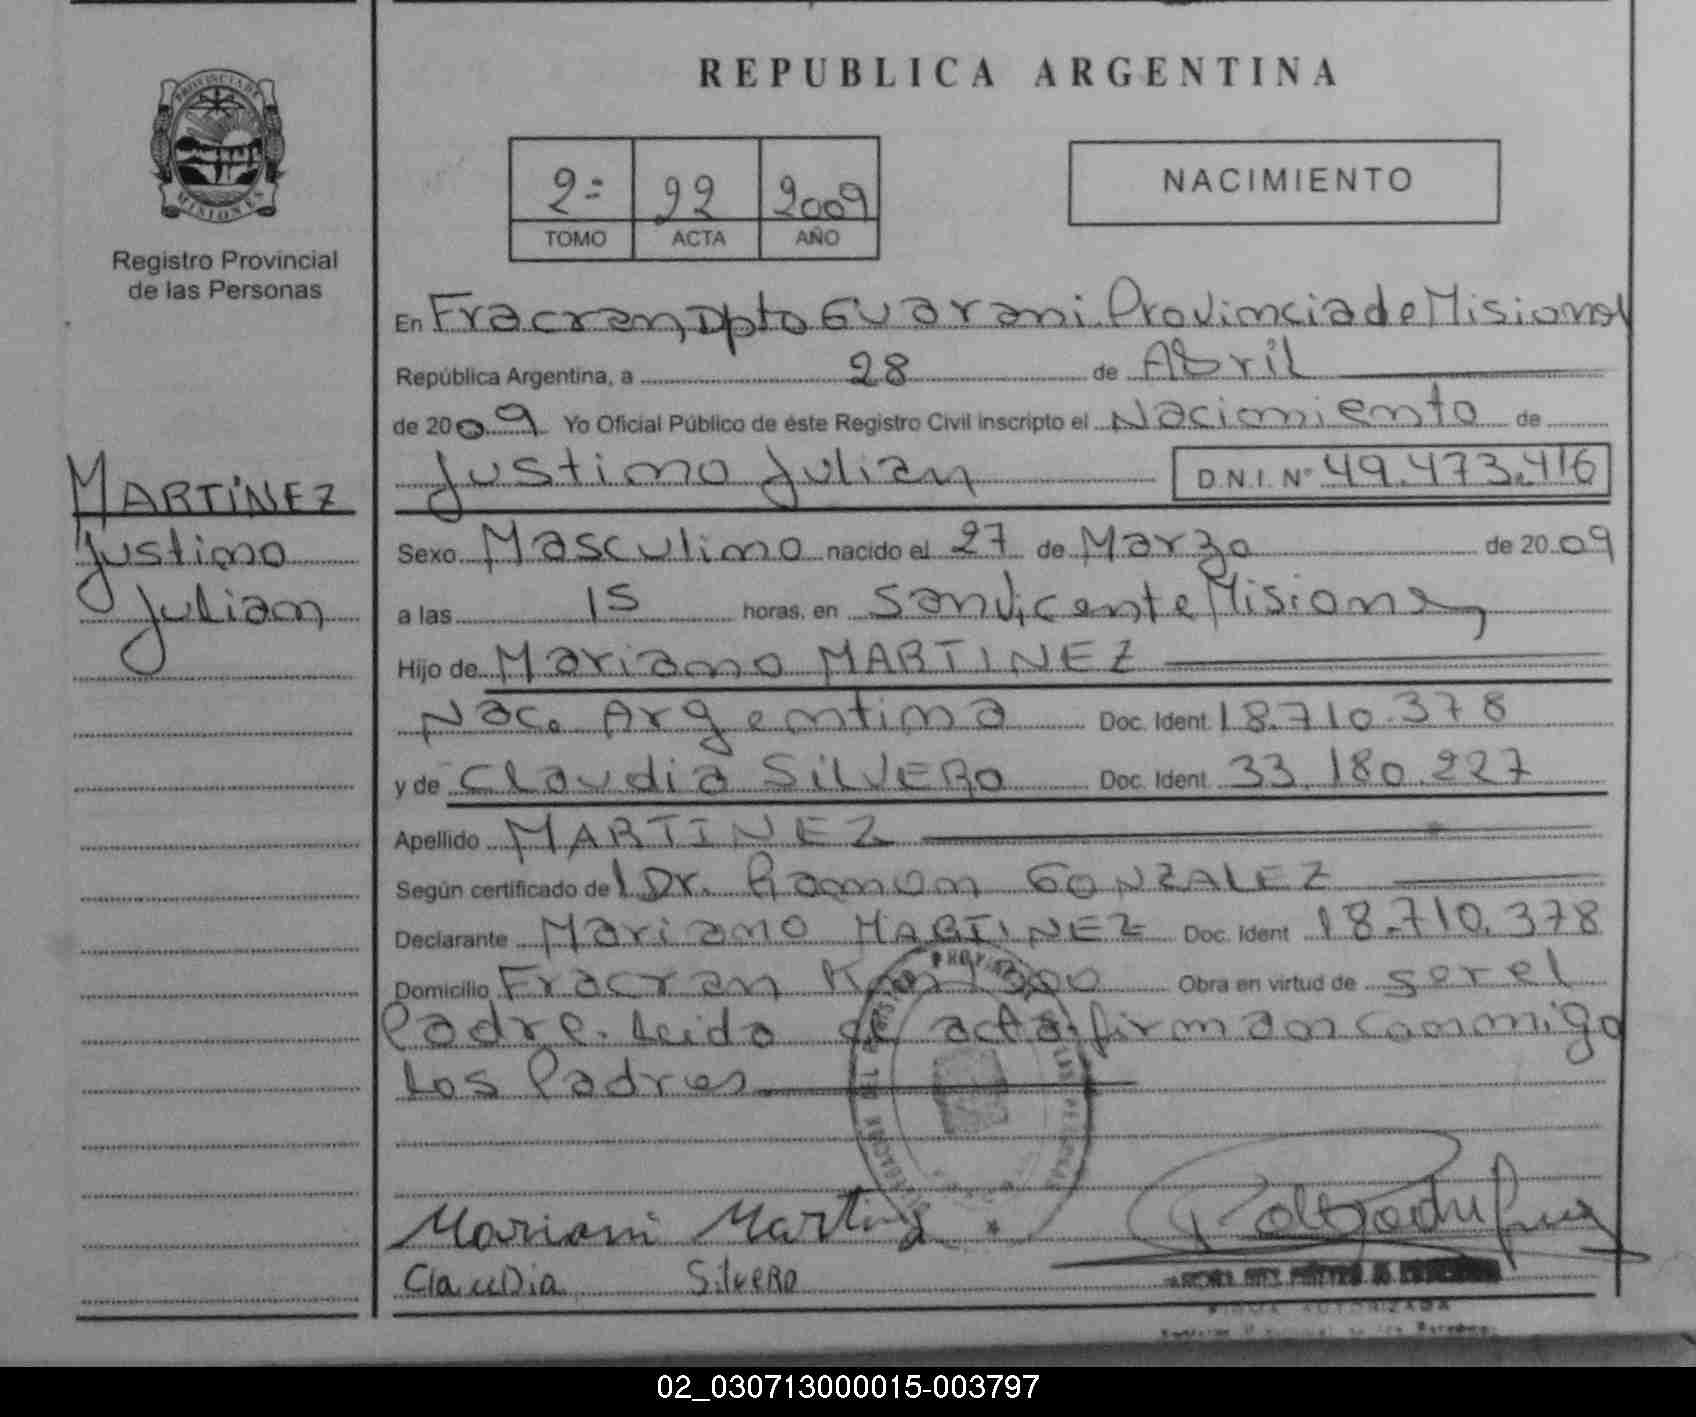 REPUBLICA ARGENTINA
PROVINCIA DE
MISIONES
Registro Provincial
de las Personas
2= 22 2009
TOMO ACTA AÑO
NACIMIENTO
En Fracran, Dpto Guarani Provincia de Misiones
República Argentina, a 28 de Abril
de 2009 Yo Oficial Público de éste Registro Civil inscripto el Nacimiento de
Justino Julian D.N.I. Nº 49.473.416
MARTíNEZ
Justino
Julian
Sexo Masculino nacido el 27 de Marzo de 2009
a las 15 horas, en San Vicente Misiones
Hijo de Mariano MARTINEZ
Nac. Argentina Doc. Ident. 18.710.378
y de Claudia SiLVERO Doc. Ident. 33.180.227
Apellido MARTINEZ
Según certificado del Dr. Ramon GONZALEZ
Declarante Mariano MARTINEZ Doc. Ident 18.710.378
Domicilio Fracran Km Obra en virtud de ser el
Padre. Leida el acta firman conmigo
Los Padres
Mariani Martinez
Claudia Silvero
FIRMA AUTORIZADA
02_030713000015-003797